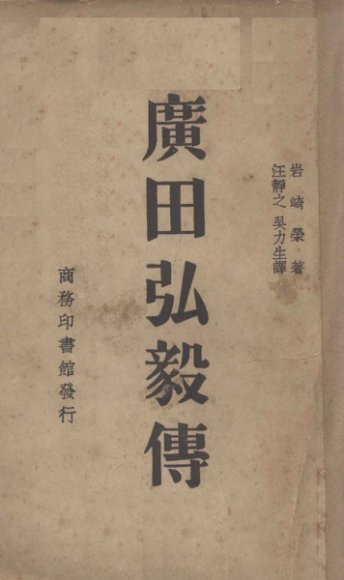 岩崎榮著
汪靜之 吳力生譯
廣田弘毅傳
商務印書館發行